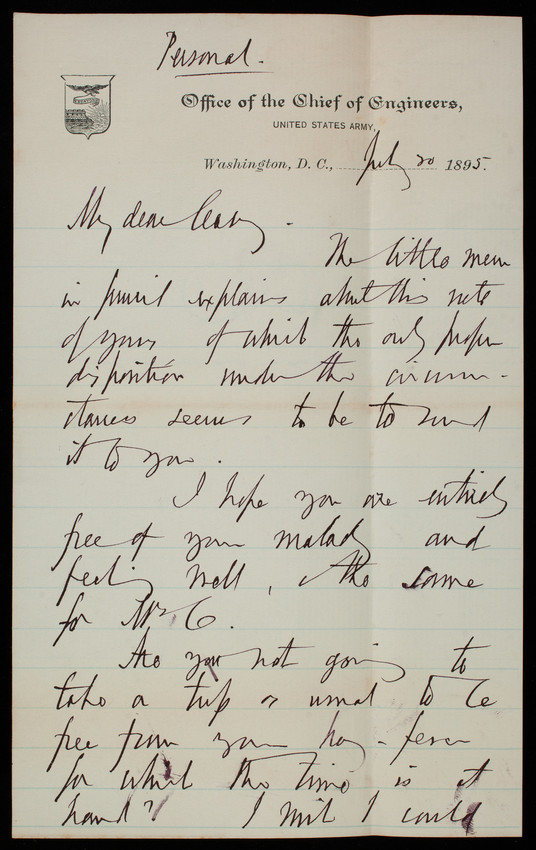 Personal.
Office of the Chief of Engineers,
UNITED STATES ARMY,
Washington, D. C., July 20 1895.
My dear Casey -
The little mem
in pencil explains about this note
of yours of which the only proper
disposition under the circum-
stances seems to be to send
it to you.
I hope you are entirely
free of your malady and
feeling well, & the same
for Mrs C.
Are you not going to
take a trip as usual to be
free from your hay-fever
for which the time is at
hand? I wish I could